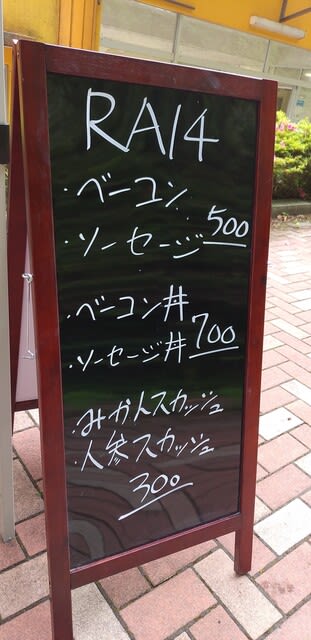 RA14
・ベーコン
・ソーセージ 500
・ベーコン丼
・ソーセージ丼 700
・みかんスカッシュ
・人参スカッシュ
300